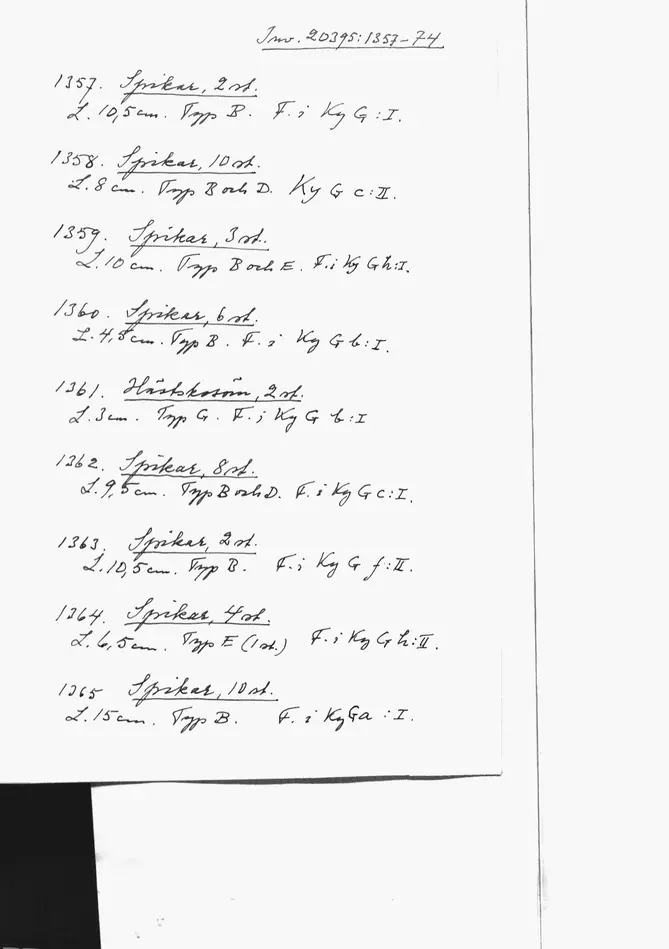 Inv. 20395:1357-74.
1357. Spikar, 2 st.
L. 10,5cm. Typ B. F. i Ky G : I.
1358. Spikar, 10 st.
L. 8 cm. Typ B och D. Ky G c : II.
1359. Spikar, 3 st.
L. 10 cm. Typ B och E. F. i Ky G h:I.
1360. Spikar, 6 st.
L. 4,8cm. Typ B. F. i Ky G b : I.
1361. Hästskosöm, 2 st.
L. 3cm. Typ G. F. i Ky G b : I
1362. Spikar, 8 st.
L. 9,5cm. Typ B och D. F. i Ky G c : I.
1363. Spikar, 2 st.
L. 10,5cm. Typ B. F. i Ky G f : II.
1364. Spikar, 4 st.
L. 6,5cm. Typ E (1 st.) F. i Ky G h : II.
1365 Spikar, 10 st.
L. 15cm. Typ B. F. i Ky Ga : I.